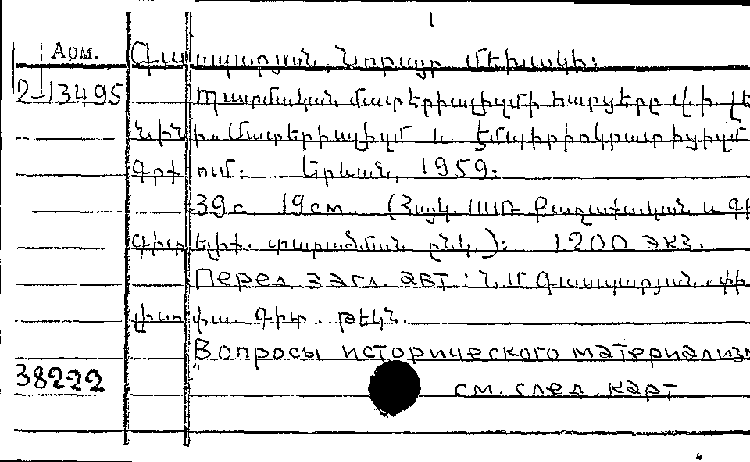 1
Арм. Գասպարյան, Նորայր Մեխակի:
2-13495 Պատմական մատերիալիզմի հարցերը Վ. Ի. Լե
նինի «Մատերիալիզմ և էմպիրիոկրիտիցիզմ
գրքում: Երևան, 1959:
39с. 19см. (Հայկ ՍՍՌ Քաղաքական և գի
գիտելիք. տարածման ընկ.): 1200 экз.
Перед загл. авт: Ն. Մ. Գասպարյան. փի
լիսոփա. գիտ. թեկն.
Вопросы исторического материализм
38222 см. след карт